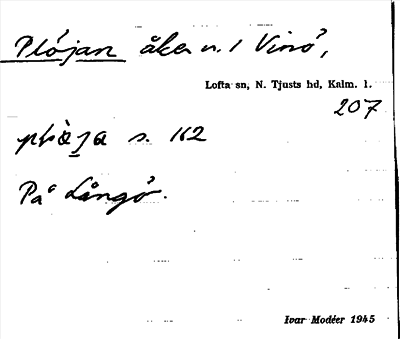 Plöjan åker n. 1 Vinö,
Lofta sn, N. Tjusts hd, Kalm. l.
207
s. 162
På Långö.
Ivar Modéer 1945